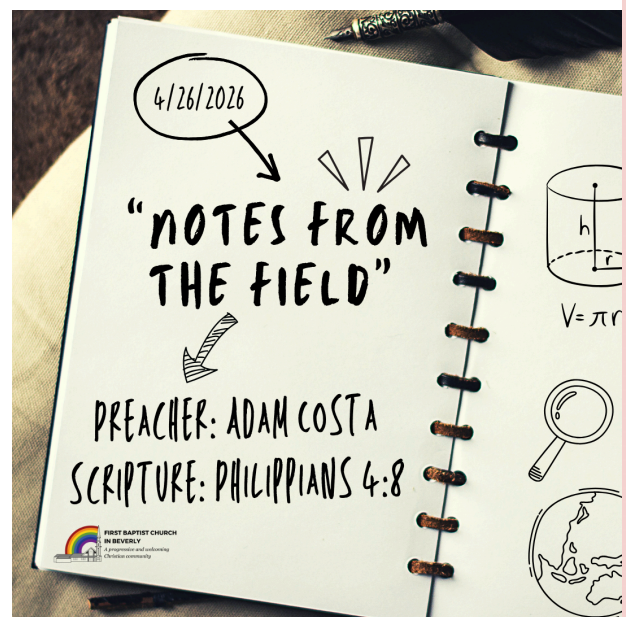 4/26/2026
“NOTES FROM
THE FIELD”
PREACHER: ADAM COSTA
SCRIPTURE: PHILIPPIANS 4:8
FIRST BAPTIST CHURCH
IN BEVERLY
A progressive and welcoming
Christian community
h
r
V=πr